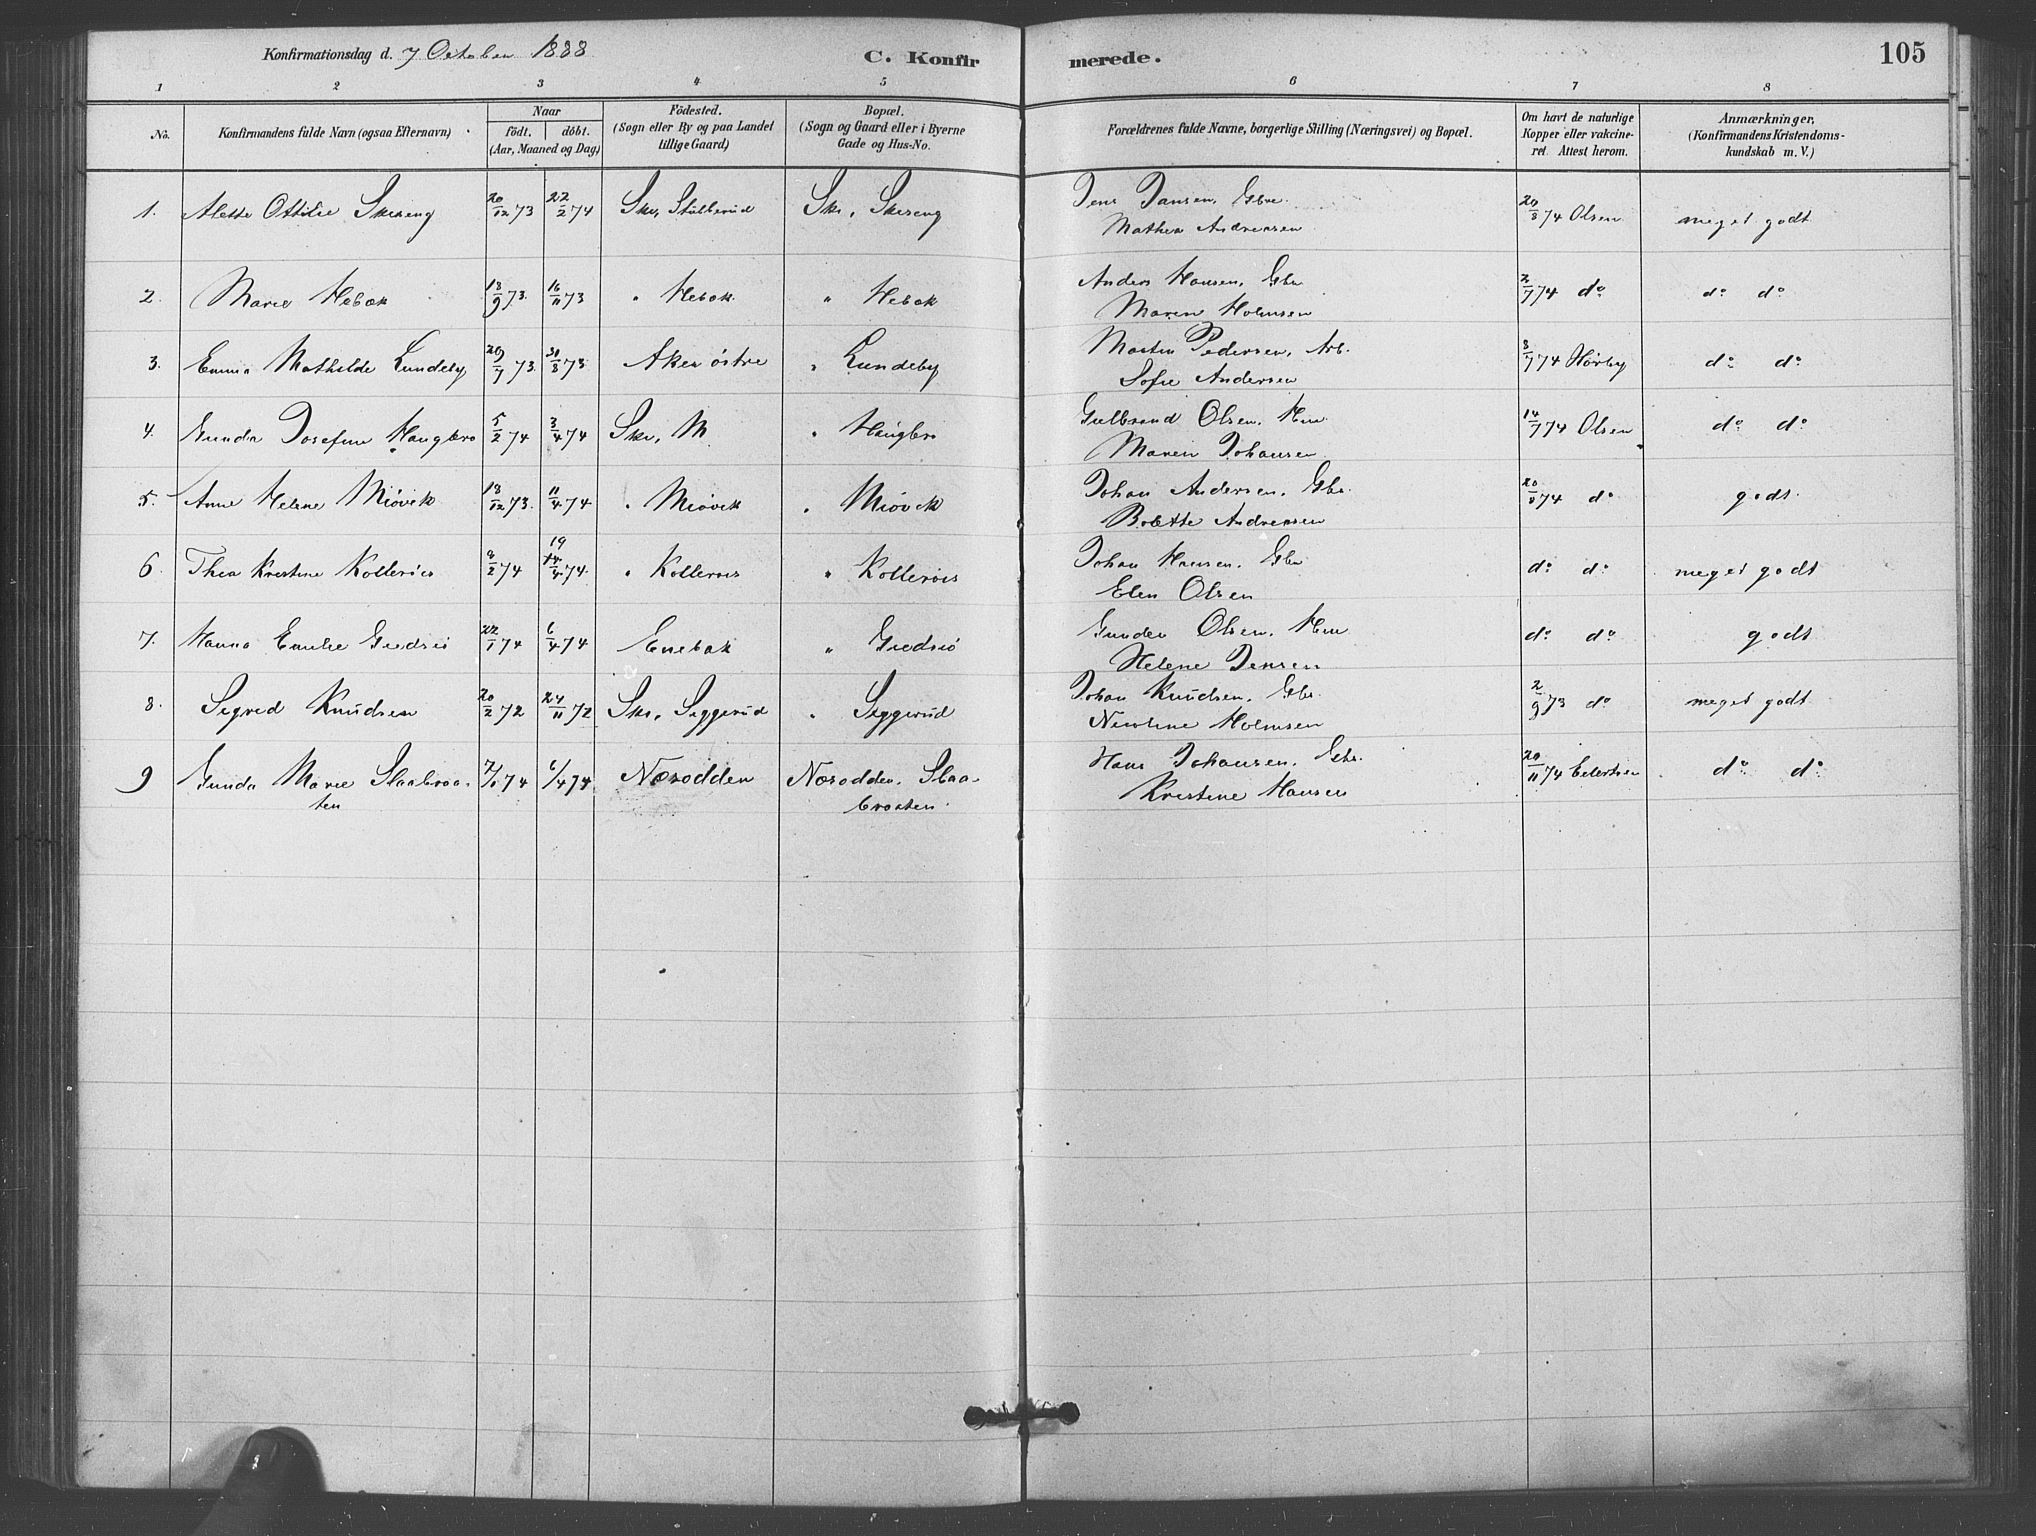 Konfirmationsdag d. 7 October 1888
C. Konfirmerede.
105
1 2 3 4 5 6 7 8
No.
Konfirmandens fulde Navn (ogsaa Efternavn)
Naar
födt. döbt.
(Aar, Maaned og Dag)
Födested.
(Sogn eller By og paa Landet
tillige Gaard)
Bopæl.
(Sogn og Gaard eller i Byerne
Gade og Hus-No.
Forældrenes fulde Navne, borgerlige Stilling (Næringsvei) og Bopæl.
Om havt de naturlige
Kopper eller vakcine-
ret. Attest herom.
Anmærkninger,
(Konfirmandens Kristendoms-
kundskab m. V.)
1. Alette Ottilie Skiseng 20/12 73 22/2 74 Ski, Stubberud Ski, Skiseng Jens Jansen, Gbr. 20/8 74 Olsen meget godt
Mathea Andreasen
2. Marie Hebæk 18/9 73. 16/11 73 " Hebæk. " Hebæk Anders Hansen, Gbr 2/7 74 do do do
Maren Holmsen
3. Emma Mathilde Lundeby 29/7 73. 31/8 73 Aker östre " Lundeby Martin Pedersen, Arb. 8/7 74 Hörby do do
Sofie Andersen
4. Gunda Josefine Haugbro 5/2 74 3/4 74 Ski, M " Haugbro Gulbrand Olsen, Hm 14/7 74 Olsen do do
Maren Johansen
5. Anne Helene Miövik 18/12 73. 11/4 74 " Miövik " Miövik Johan Andersen, Gbr. 20/8 74 do godt.
Bolette Andreasen
6. Thea Kristine Kolleröis 8/2 74 19 14/4 74. " Kolleröis " Kolleröis Johan Hansen, Gbr do do meget godt
Elen Olsen
7. Hanna Emilie Gjedsiö 22/1 74 6/4 74 Enebak " Gjedsiö Gunder Olsen, Hm do do godt
Helene Jensen
8. Sigrid Knudsen 20/2 72 24/11 72 Ski, Siggerud " Siggerud Johan Knudsen, Gbr. 2/9 73 do meget godt
Nicoline Holmsen
9 Gunda Marie Slaabraa- 7/1 74 6/4 74 Næsodden Næsodden, Slaa- Hans Johansen, Gbr. 20/11 74 Eilertsen do do
ten braaten Kristine Hansen